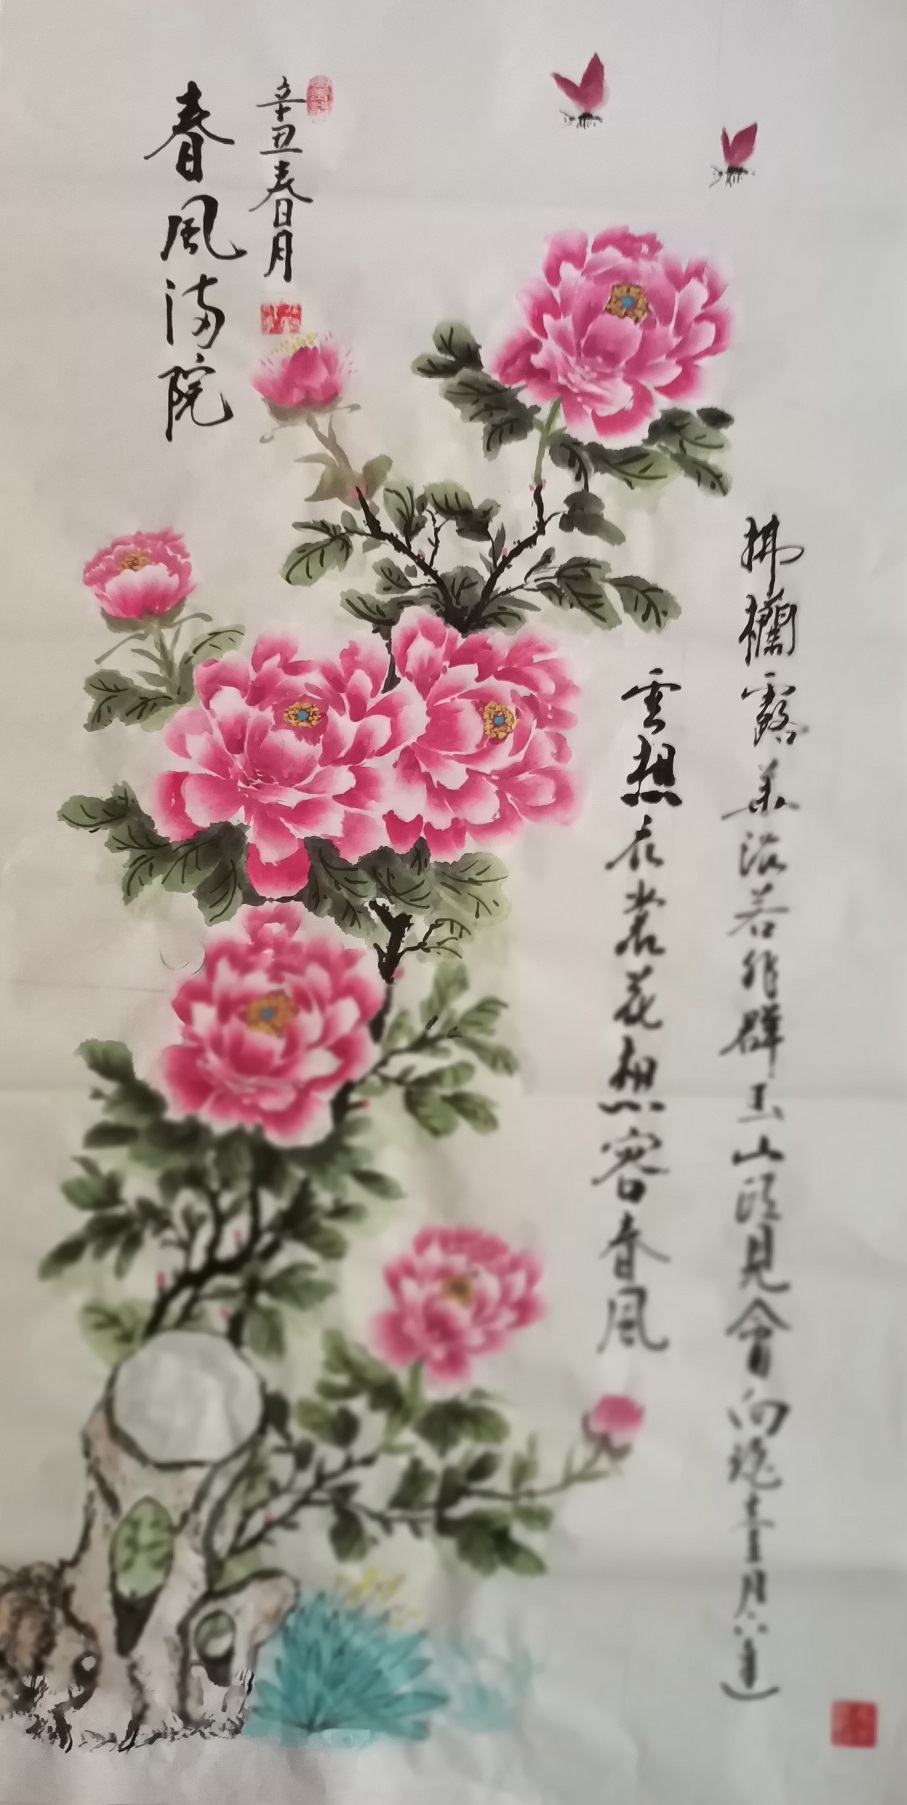 春風满院
辛丑春月
雲想衣裳花想容春風
拂欄露華浓若非群玉山頭見會向瑶臺月下逢